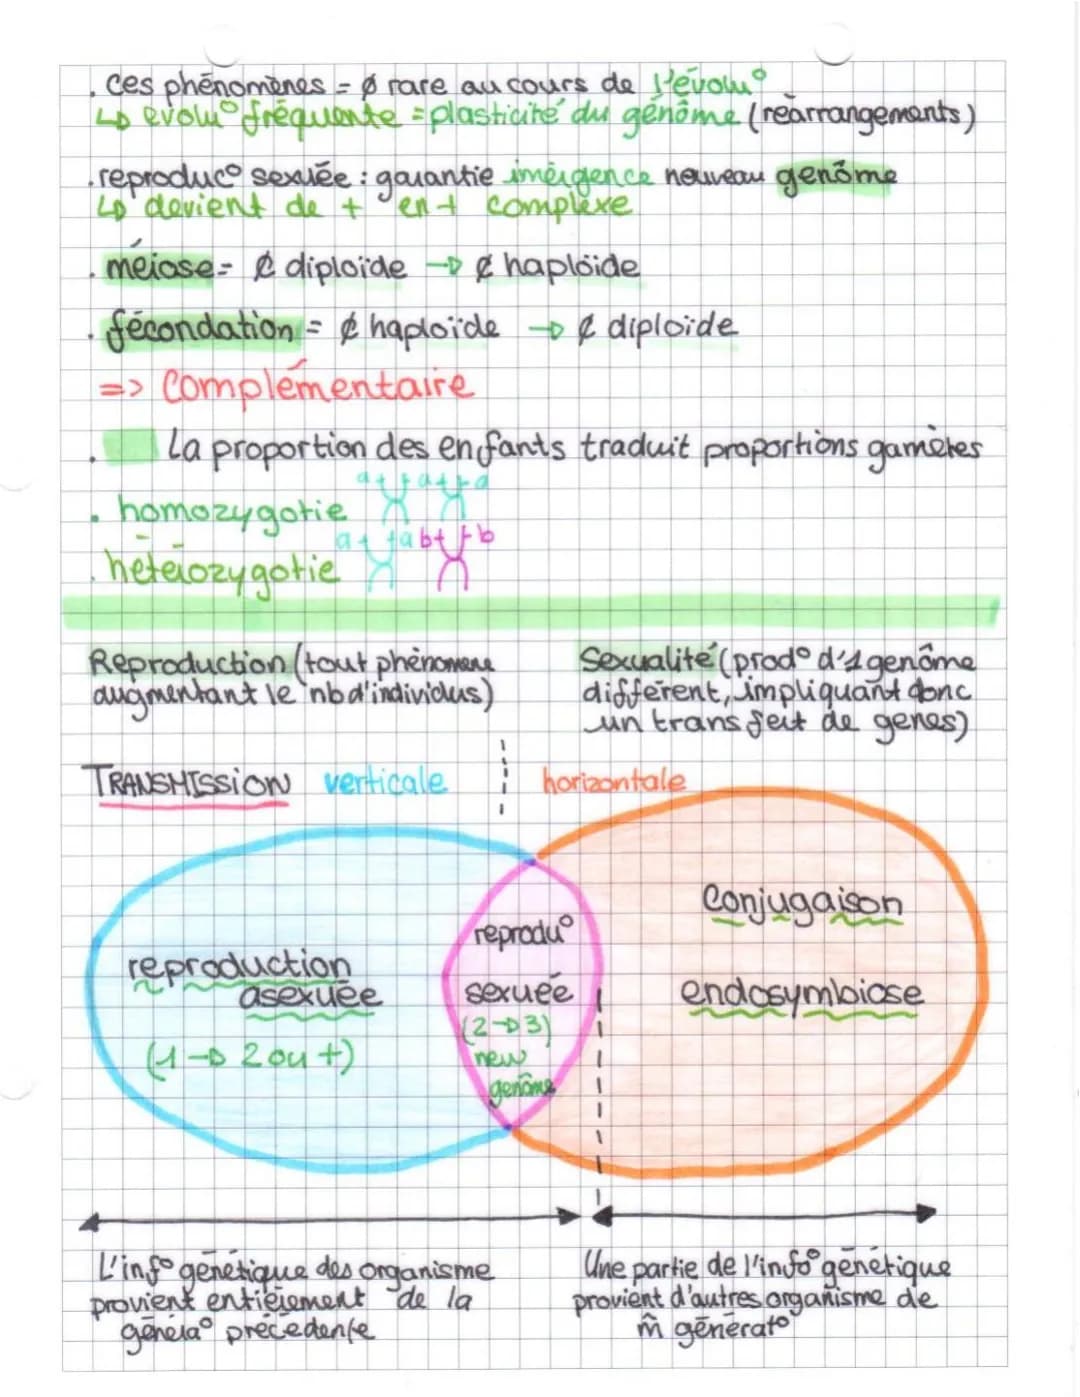 . Ces phénomènes = ∅ rare au cours de l'évolu°
↳ évolu° fréquente = plasticité du génôme (réarrangements)
. reproduc° sexuée : garantie imérgence nouveau genôme
↳ devient de + en + complexe
. méiose = ¢ diploïde → ¢ haploïde
. fécondation = ¢ haploïde → ¢ diploïde
=> Complémentaire
. La proportion des enfants traduit proportions gamètes
a a a a
. homozygotie
a a b b
. hétérozygotie
Reproduction (tout phénomène
augmentant le nb d'individus)
Sexualité (prod° d'1 genôme
différent, impliquant donc
un transfert de genes)
TRANSMISSION verticale
horizontale
Conjugaison
reprodu°
reproduction
asexuée
sexuée
endosymbiose
(2→3)
(1→ 2 ou +)
new
genôme
L'info génétique des organisme
provient entièrement de la
généra° précédente
Une partie de l'info° génétique
provient d'autres organisme de
m̂ générat°